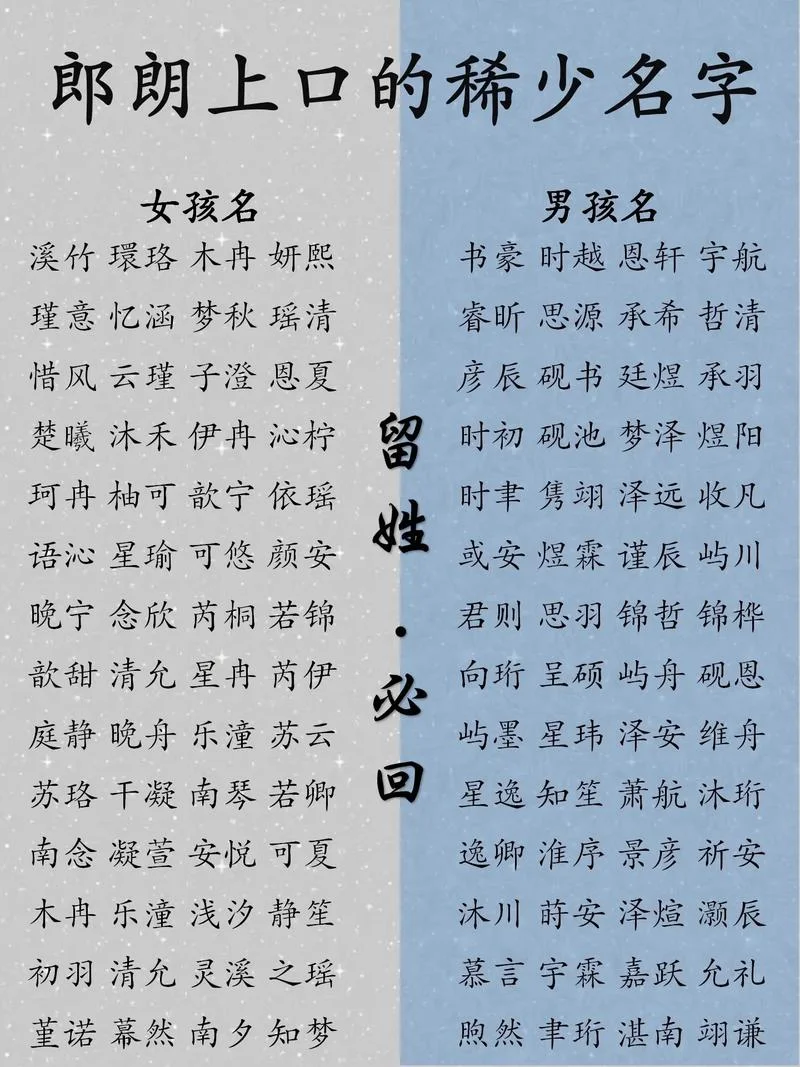 郎朗上口的稀少名字
女孩名
溪竹 環珞 木冉 妍熙
瑾意 忆涵 梦秋 瑶清
惜风 云瑾 子澄 恩夏
楚曦 沐禾 伊冉 沁柠
珂冉 柚可 歆宁 依瑶
语沁 星瑜 可悠 颜安
晚宁 念欣 芮桐 若锦
歆甜 清允 星冉 芮伊
庭静 晚舟 乐潼 苏云
苏珞 干凝 南琴 若卿
南念 凝萱 安悦 可夏
木冉 乐潼 浅汐 静笙
初羽 清允 灵溪 之瑶
堇诺 幕然 南夕 知梦
留姓·必回
男孩名
书豪 时越 恩轩 宇航
睿昕 思源 承希 哲清
彦辰 砚书 廷煜 承羽
时初 砚池 梦泽 煜阳
时聿 隽翊 泽远 收凡
或安 煜霖 谨辰 屿川
君则 思羽 锦哲 锦桦
向珩 呈硕 屿舟 砚恩
屿墨 星玮 泽安 维舟
星逸 知笙 萧航 沐珩
逸卿 淮序 景彦 祈安
沐川 莳安 泽煊 灏辰
慕言 宇霖 嘉跃 允礼
煦然 聿珩 湛南 翊谦